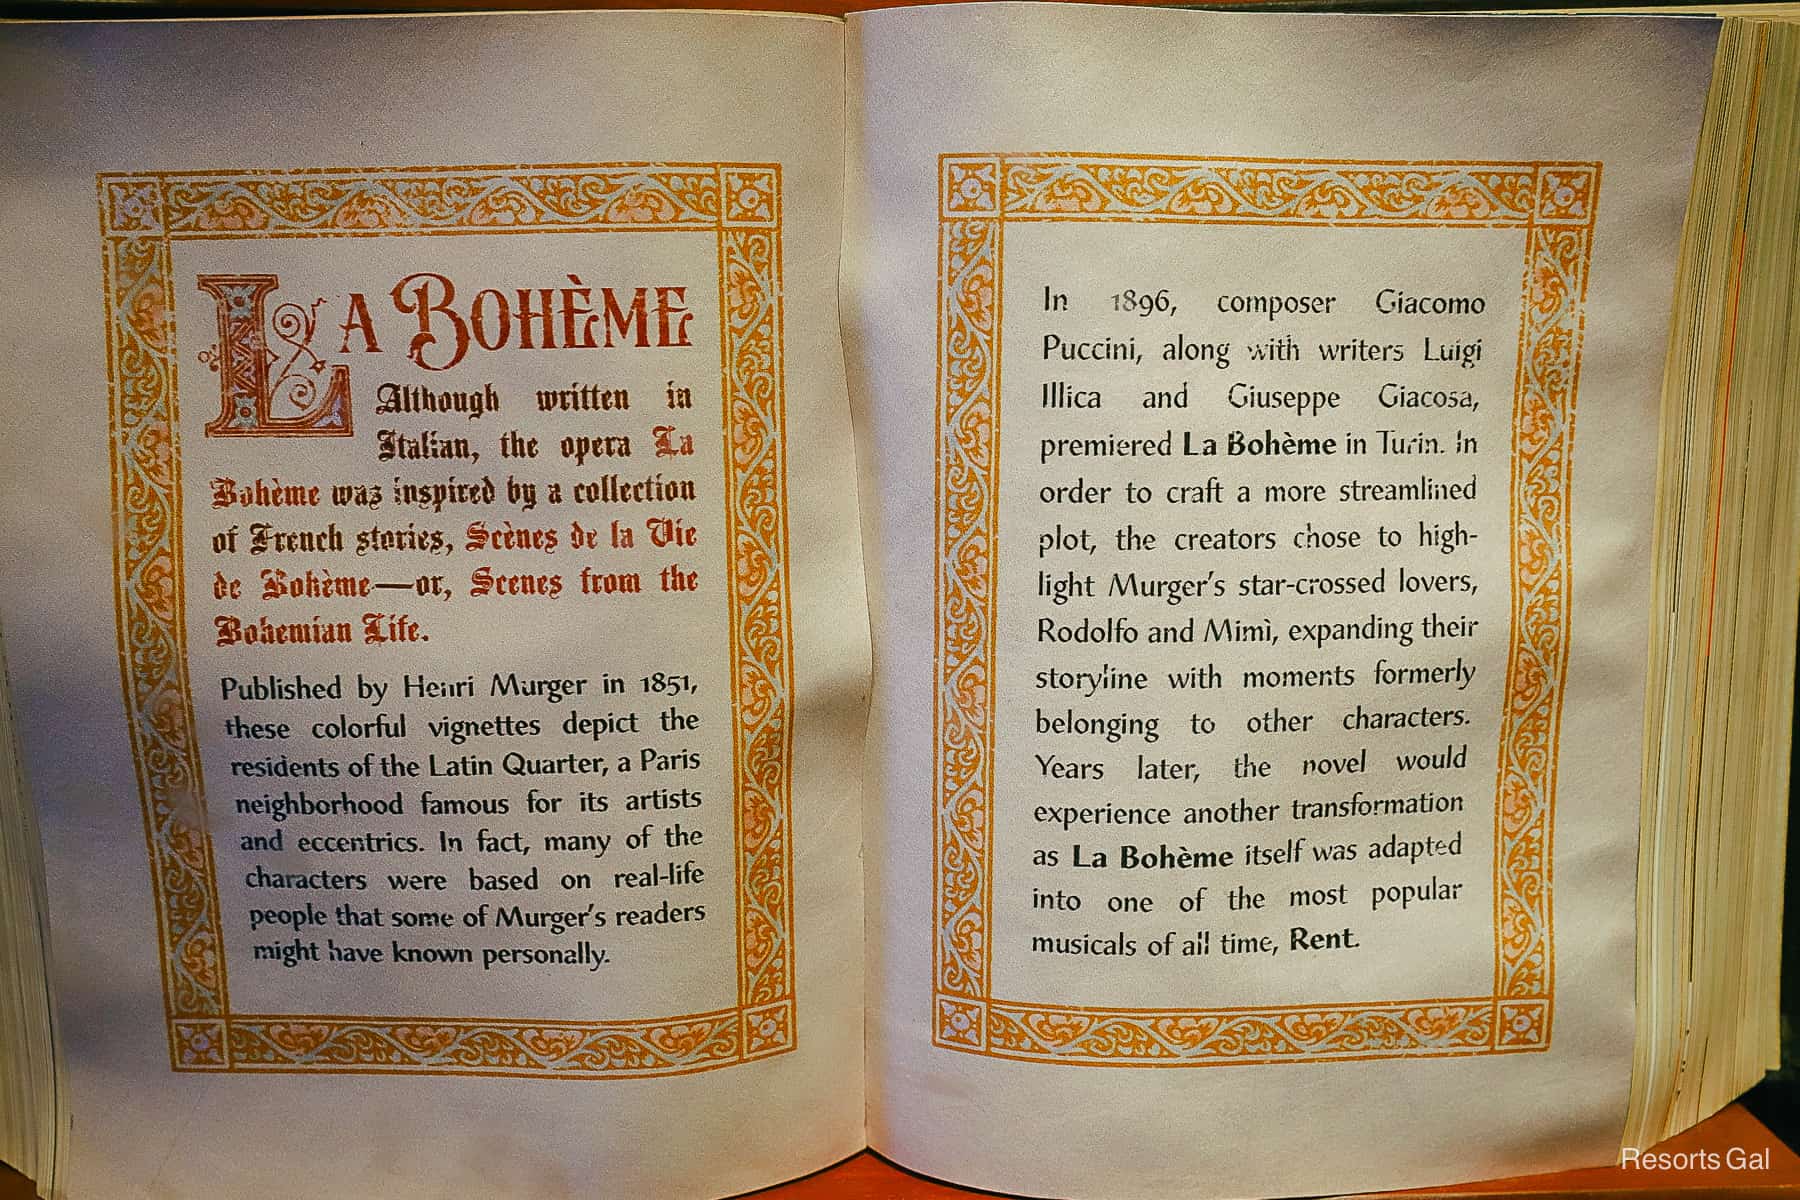 LA BOHÈME
Although written in
Italian, the opera La
Bohème was inspired by a collection
of French stories, Scènes de la Vie
de Bohème—or, Scenes from the
Bohemian Life.
Published by Henri Murger in 1851,
these colorful vignettes depict the
residents of the Latin Quarter, a Paris
neighborhood famous for its artists
and eccentrics. In fact, many of the
characters were based on real-life
people that some of Murger's readers
might have known personally.
In 1896, composer Giacomo
Puccini, along with writers Luigi
Illica and Giuseppe Giacosa,
premiered La Bohème in Turin. In
order to craft a more streamlined
plot, the creators chose to high-
light Murger's star-crossed lovers,
Rodolfo and Mimì, expanding their
storyline with moments formerly
belonging to other characters.
Years later, the novel would
experience another transformation
as La Bohème itself was adapted
into one of the most popular
musicals of all time, Rent.
Resorts Gal